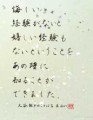 悔しい
経験がないと
嬉しい経験も
ないということを
あの壇に
知ることが
できました。